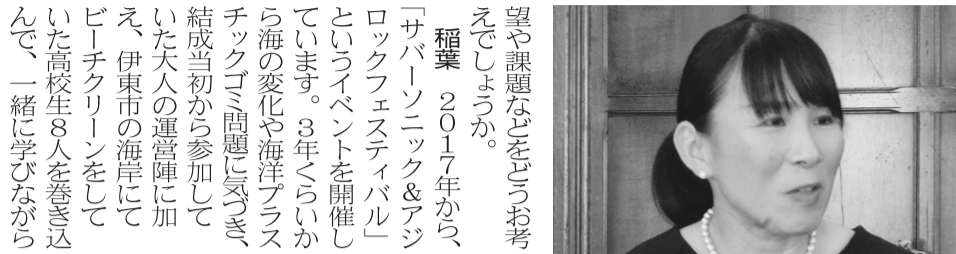 望や課題などをどうお考
えでしょうか。
稲葉　２０１７年から、
「サバーソニック＆アジ
ロックフェスティバル」
というイベントを開催し
ています。３年くらいか
ら海の変化や海洋プラス
チックゴミ問題に気づき、
結成当初から参加して
いた大人の運営陣に加
え、伊東市の海岸にて
ビーチクリーンをして
いた高校生８人を巻き込
んで、一緒に学びながら